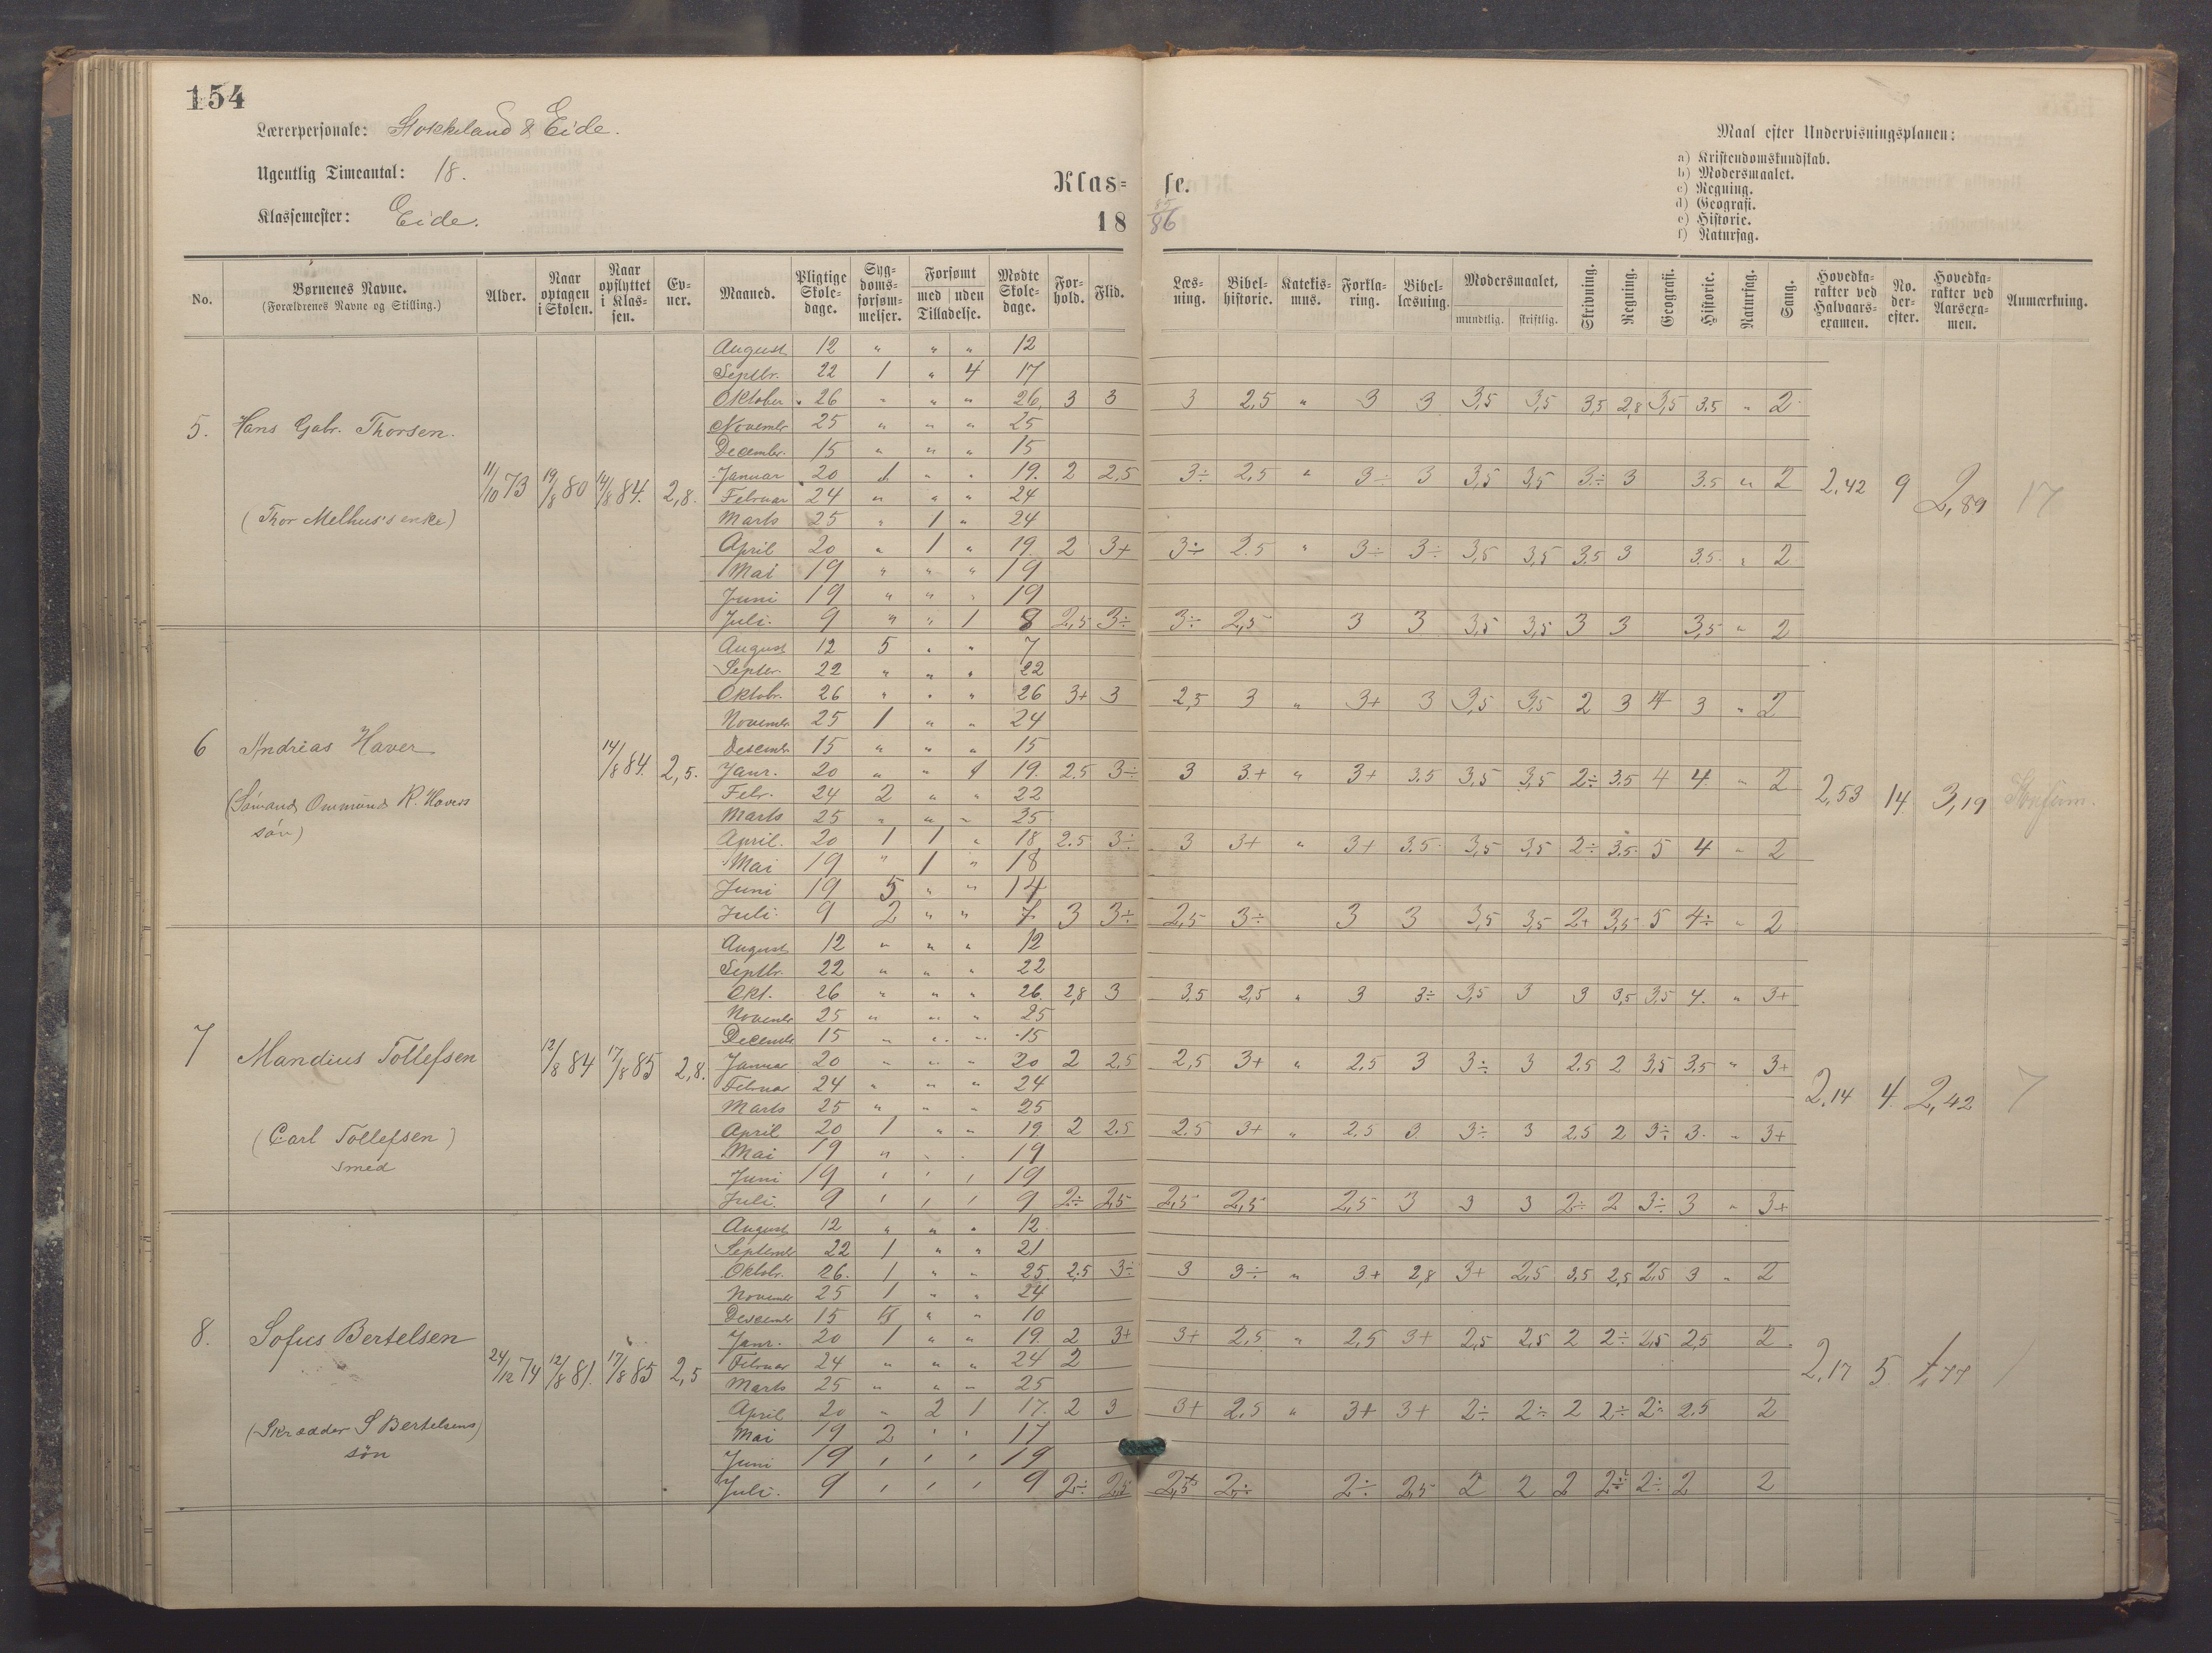 154
Lærerpersonale: Stokkeland & Eide.
Ugentlig Timeantal: 18.
Klassemester: Eide.
Klas= se.
18 85/86
Maal efter Undervisningsplanen:
a) Kristendomskundskab.
b) Modersmaalet.
c) Regning.
d) Geografi.
e) Historie.
f) Naturfag.
No. Børnenes Navne. (Forældrenes Navne og Stilling.) Alder. Naar optagen i Skolen. Naar opflyttet i Klassen. Evner. Maaned. Pligtige Skoledage. Sygdomsforsømmelser. Forsømt med uden Tilladelse. Mødte Skoledage. Forhold. Flid. Læsning. Bibelhistorie. Katekismus. Forklaring. Bibellæsning. Modersmaalet, mundtlig. skriftlig. Skrivning. Regning. Geografi. Historie. Naturfag. Sang. Hovedkarakter ved Halvaarsexamen. No. derefter. Hovedkarakter ved Aarsexamen. Anmærkning.
5. Hans Gabr. Thorsen. (Thor Melhus's enke) 11/10 73 19/8 80 14/8 84. 2,8. 2,42 9 2,89 17
August 12 " " " 12
Septbr. 22 1 " 4 17
Oktober 26 " " " 26 3 3 3 2,5 " 3 3 3,5 3,5 3,5 2,8 3,5 3.5 " 2
Novembr 25 " " " 25
Decembr. 15 " " " 15
Januar 20 1 " " 19. 2 2,5 3÷ 2,5 " 3÷ 3 3,5 3,5 3÷ 3 3.5 " 2
Februar 24 " " " 24
Marts 25 " 1 " 24
April 20 " 1 " 19. 2 3+ 3÷ 2.5 " 3÷ 3÷ 3,5 3,5 3.5 3 3.5 " 2
Mai 19 " " " 19
Juni 19 " " " 19
Juli. 9 " " 1 8 2,5 3÷ 3÷ 2,5 3 3 3,5 3,5 3 3 3,5 " 2
6 Andreas Haver (Sømand Ommund R. Havers søn) 14/8 84. 2,5. 2,53 14. 3,19
August 12 5 " " 7
Septbr. 22 " " " 22
Oktobr. 26 " " " 26 3+ 3 2,5 3 " 3+ 3 3,5 3,5 2 3 4 3 " 2
Novembr 25 1 " " 24
Desembr 15 " " " 15
Janr. 20 " " 1 19. 2.5 3÷ 3 3+ " 3+ 3.5 3,5 3,5 2÷ 3.5 4 4. " 2
Febr. 24 2 " " 22
Marts 25 " " " 25
April. 20 1 1 " 18 2.5 3÷ 3 3+ " 3+ 3.5 3,5 3,5 2÷ 3.5 5 4 " 2
Mai 19 " 1 " 18
Juni 19 5 " " 14
Juli. 9 2 " " 7 3 3÷ 2,5 3÷ 3 3 3,5 3,5 2+ 3,5 5 4÷ " 2
7 Mandius Tollefsen (Carl Tollefsen) smed 12/8 84 17/8 85 2,8. 2,14 4. 2,42 7
August 12 " " " 12
Septbr. 22 " " " 22
Okt. 26 " " " 26. 2,8 3 3.5 2,5 " 3 3÷ 3,5 3 3 3,5 3,5 4. " 3+
Novembr 25 " " " 25
Decembr 15 " " " 15
Januar 20 " " " 20 2 2,5 2,5 3+ " 2,5 3 3÷ 3 2.5 2 3,5 3.5 " 3+
Februar 24 " " " 24
Marts 25 " " " 25
April 20 1 " " 19 2 2.5 2.5 3+ " 2,5 3 3÷ 3 2,5 2 3÷ 3. " 3+
Mai 19 " " " 19
Juni 19 " " " 19
Juli. 9 " " " 9 2÷ 2,5 2,5 2,5 2,5 3 3 3 2÷ 2 3÷ 3 " 3+
8. Sofus Bertelsen (Skrædder S Bertelsens) søn 24/12 74 12/8 81. 17/8 85 2,5 2,17 5
August 12 " " " 12
Septembr 22 1 " " 21
Oktobr. 26. 1 " " 25. 2.5 3÷ 3 3÷ " 3+ 2,8 3+ 2,5 3,5 2,5 2,5 3 " 2
Novembr 25 1 " " 24
Desembr 15 5 " " 10
Janr. 20 1 " " 19. 2 3+ 3+ 2,5 " 2,5 3+ 2,5 2,5 2 2÷ 2,5 2,5 2
Februar 24 " " " 24 2
Marts 25 " " " 25
April 20 " 2 1 17. 2 3 3+ 2,5 " 3+ 3+ 2÷ 2÷ 2 2÷ 2÷ 2.5 2
Mai 19 2 " " 17
Juni 19 " " " 19
Juli. 9 " " " 9 2÷ 2,5 2,5 2÷ 2÷ 2,5 2 2 2 2÷ 2÷ 2 2